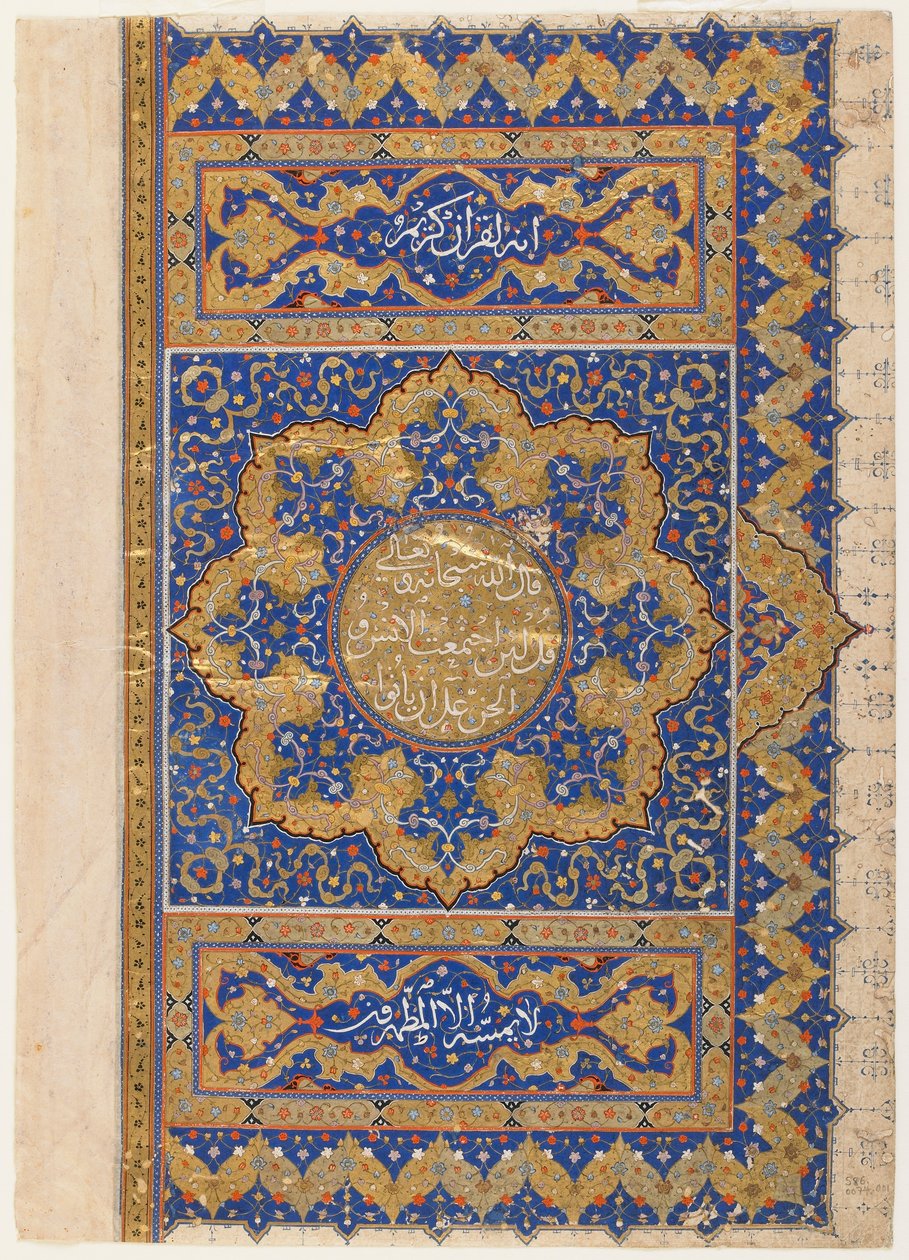 انه لقرآن كريم
قال الله سبحانه و تعالى
قل لئن اجتمعت الانس و
الجن على ان ياتوا
لا يمسّه الّا المطهرون
586.
0074.001